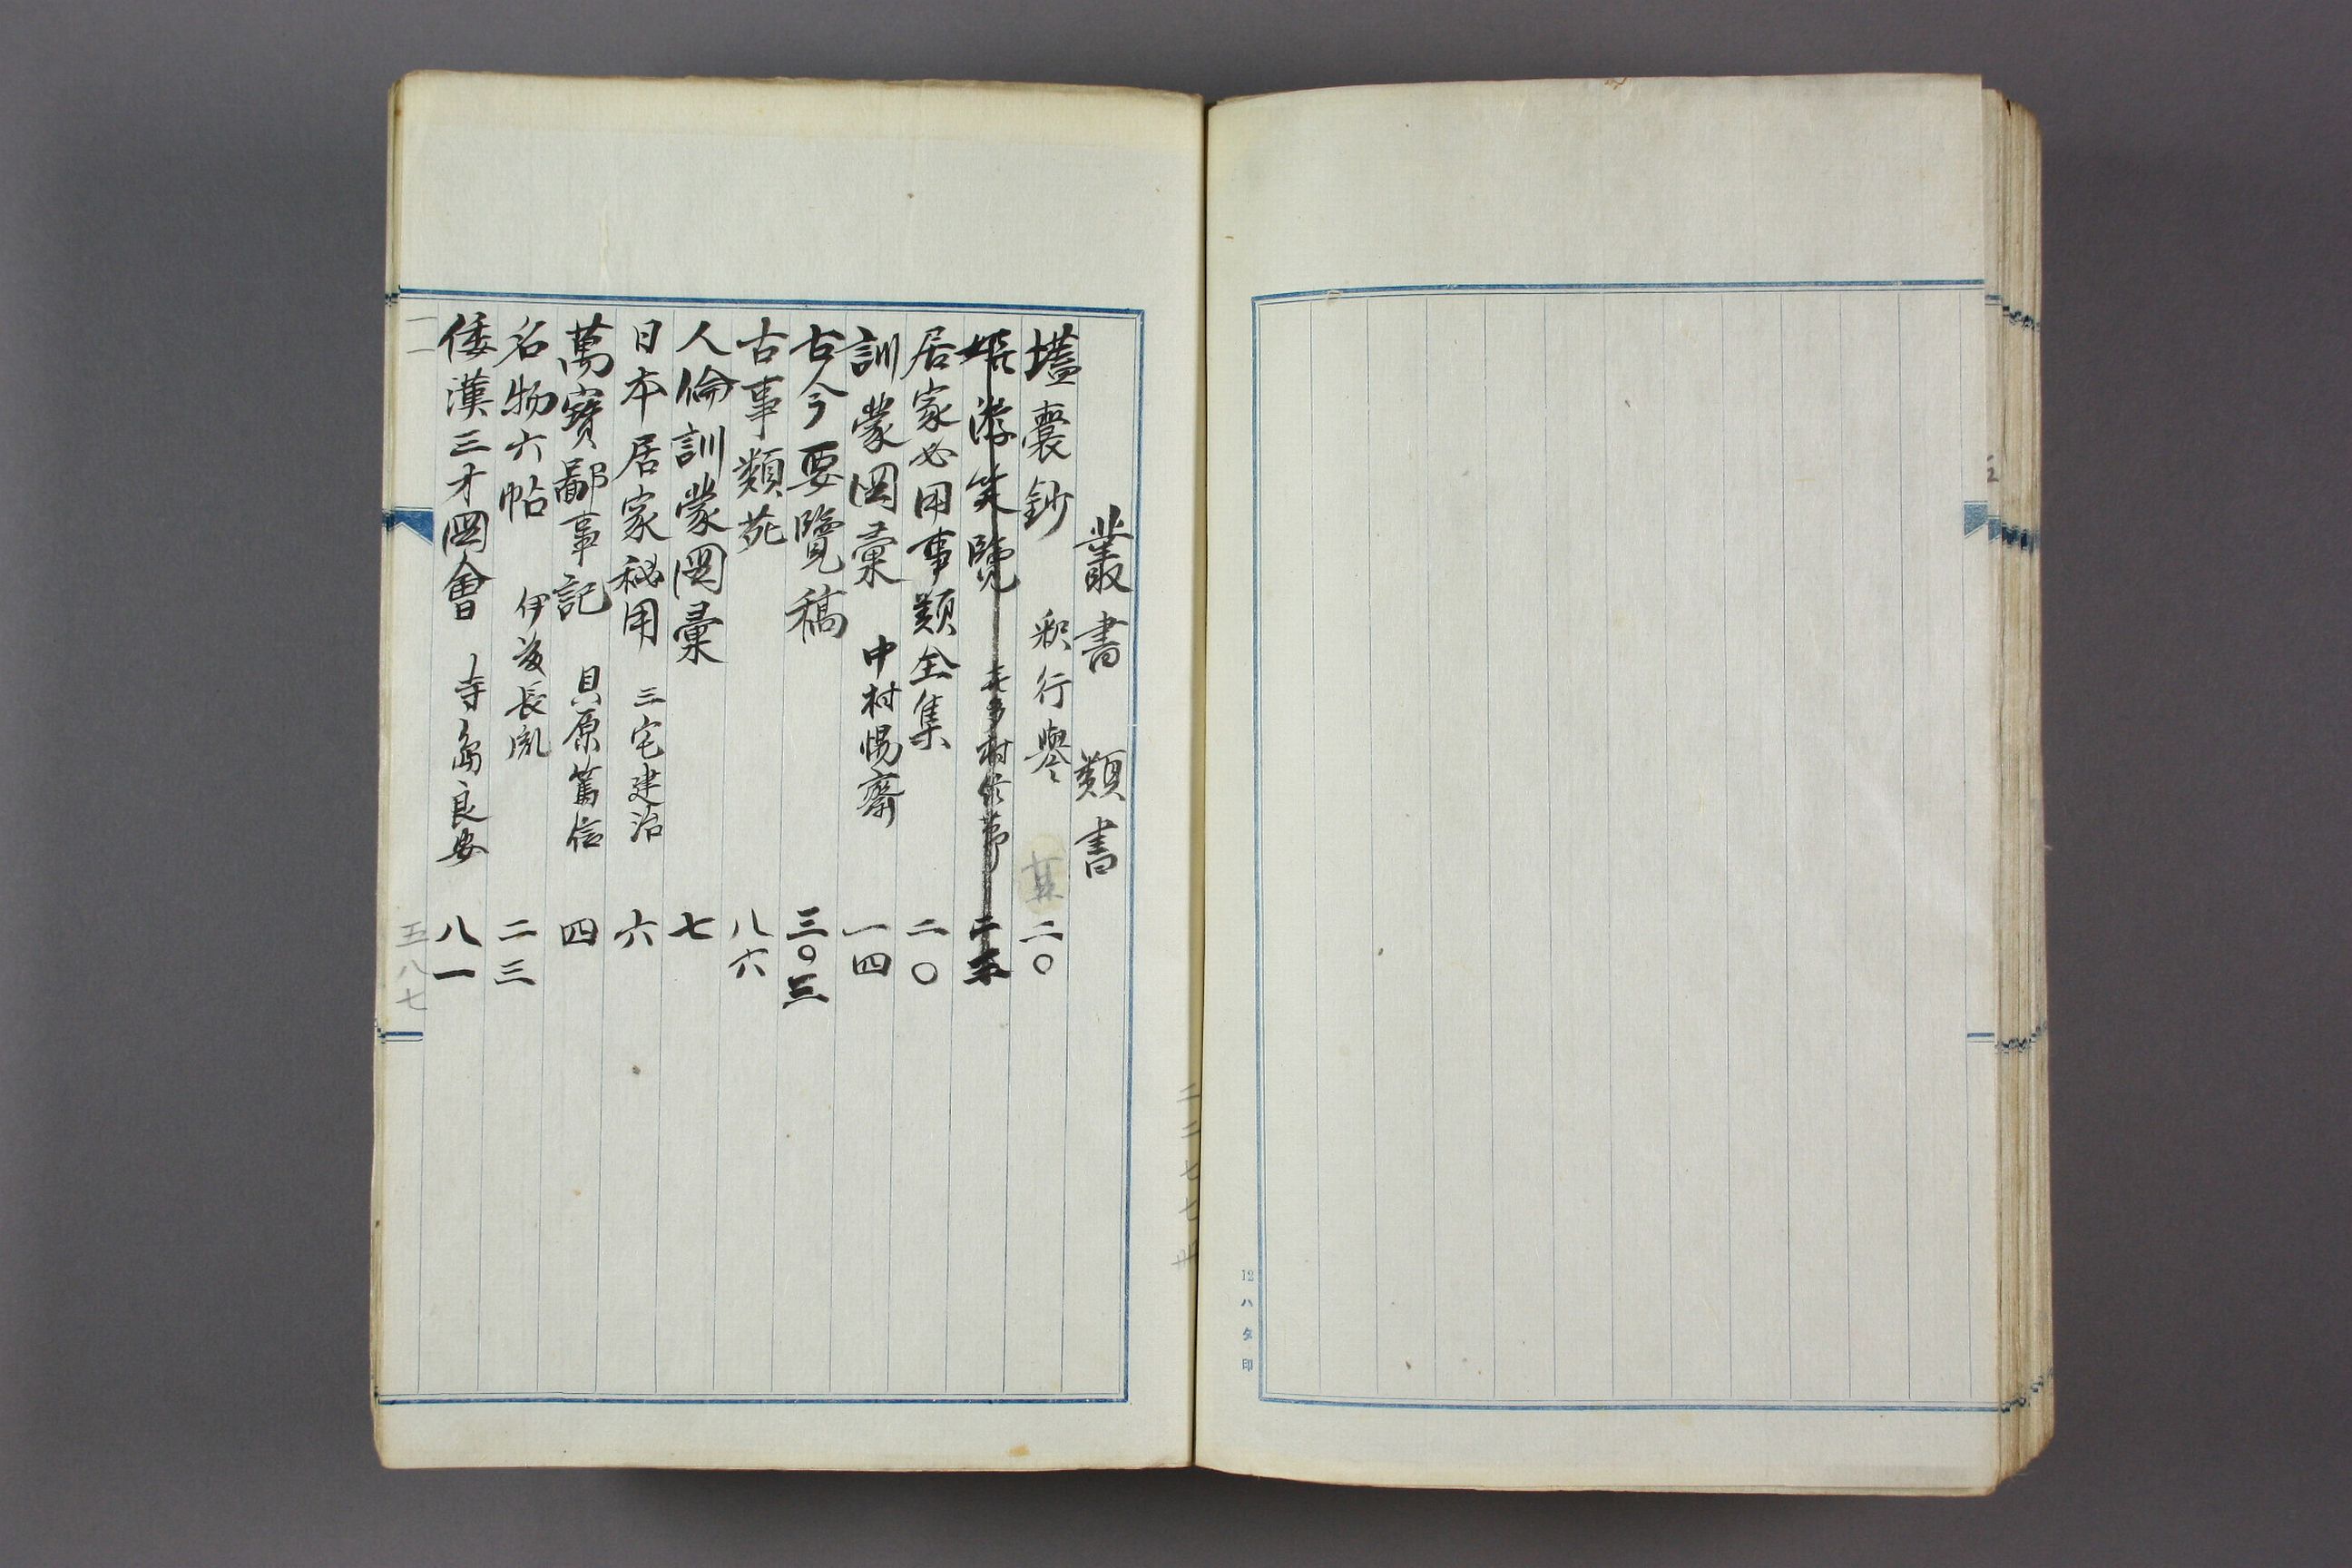 叢書 類書
壒囊鈔 釈行誉 二〇
嬉游笑覧 喜多村信節
居家必用事類全集 二〇
訓蒙図彙 中村惕齋 一四
古今要覽稿 三〇三
古事類苑 八六
人倫訓蒙図彙 七
日本居家秘用 三宅建治 六
萬寳鄙事記 貝原篤信 四
名物六帖 伊藤長胤 二三
倭漢三才圖會 寺島良安 八一
一一 五八七
12 ハタ印